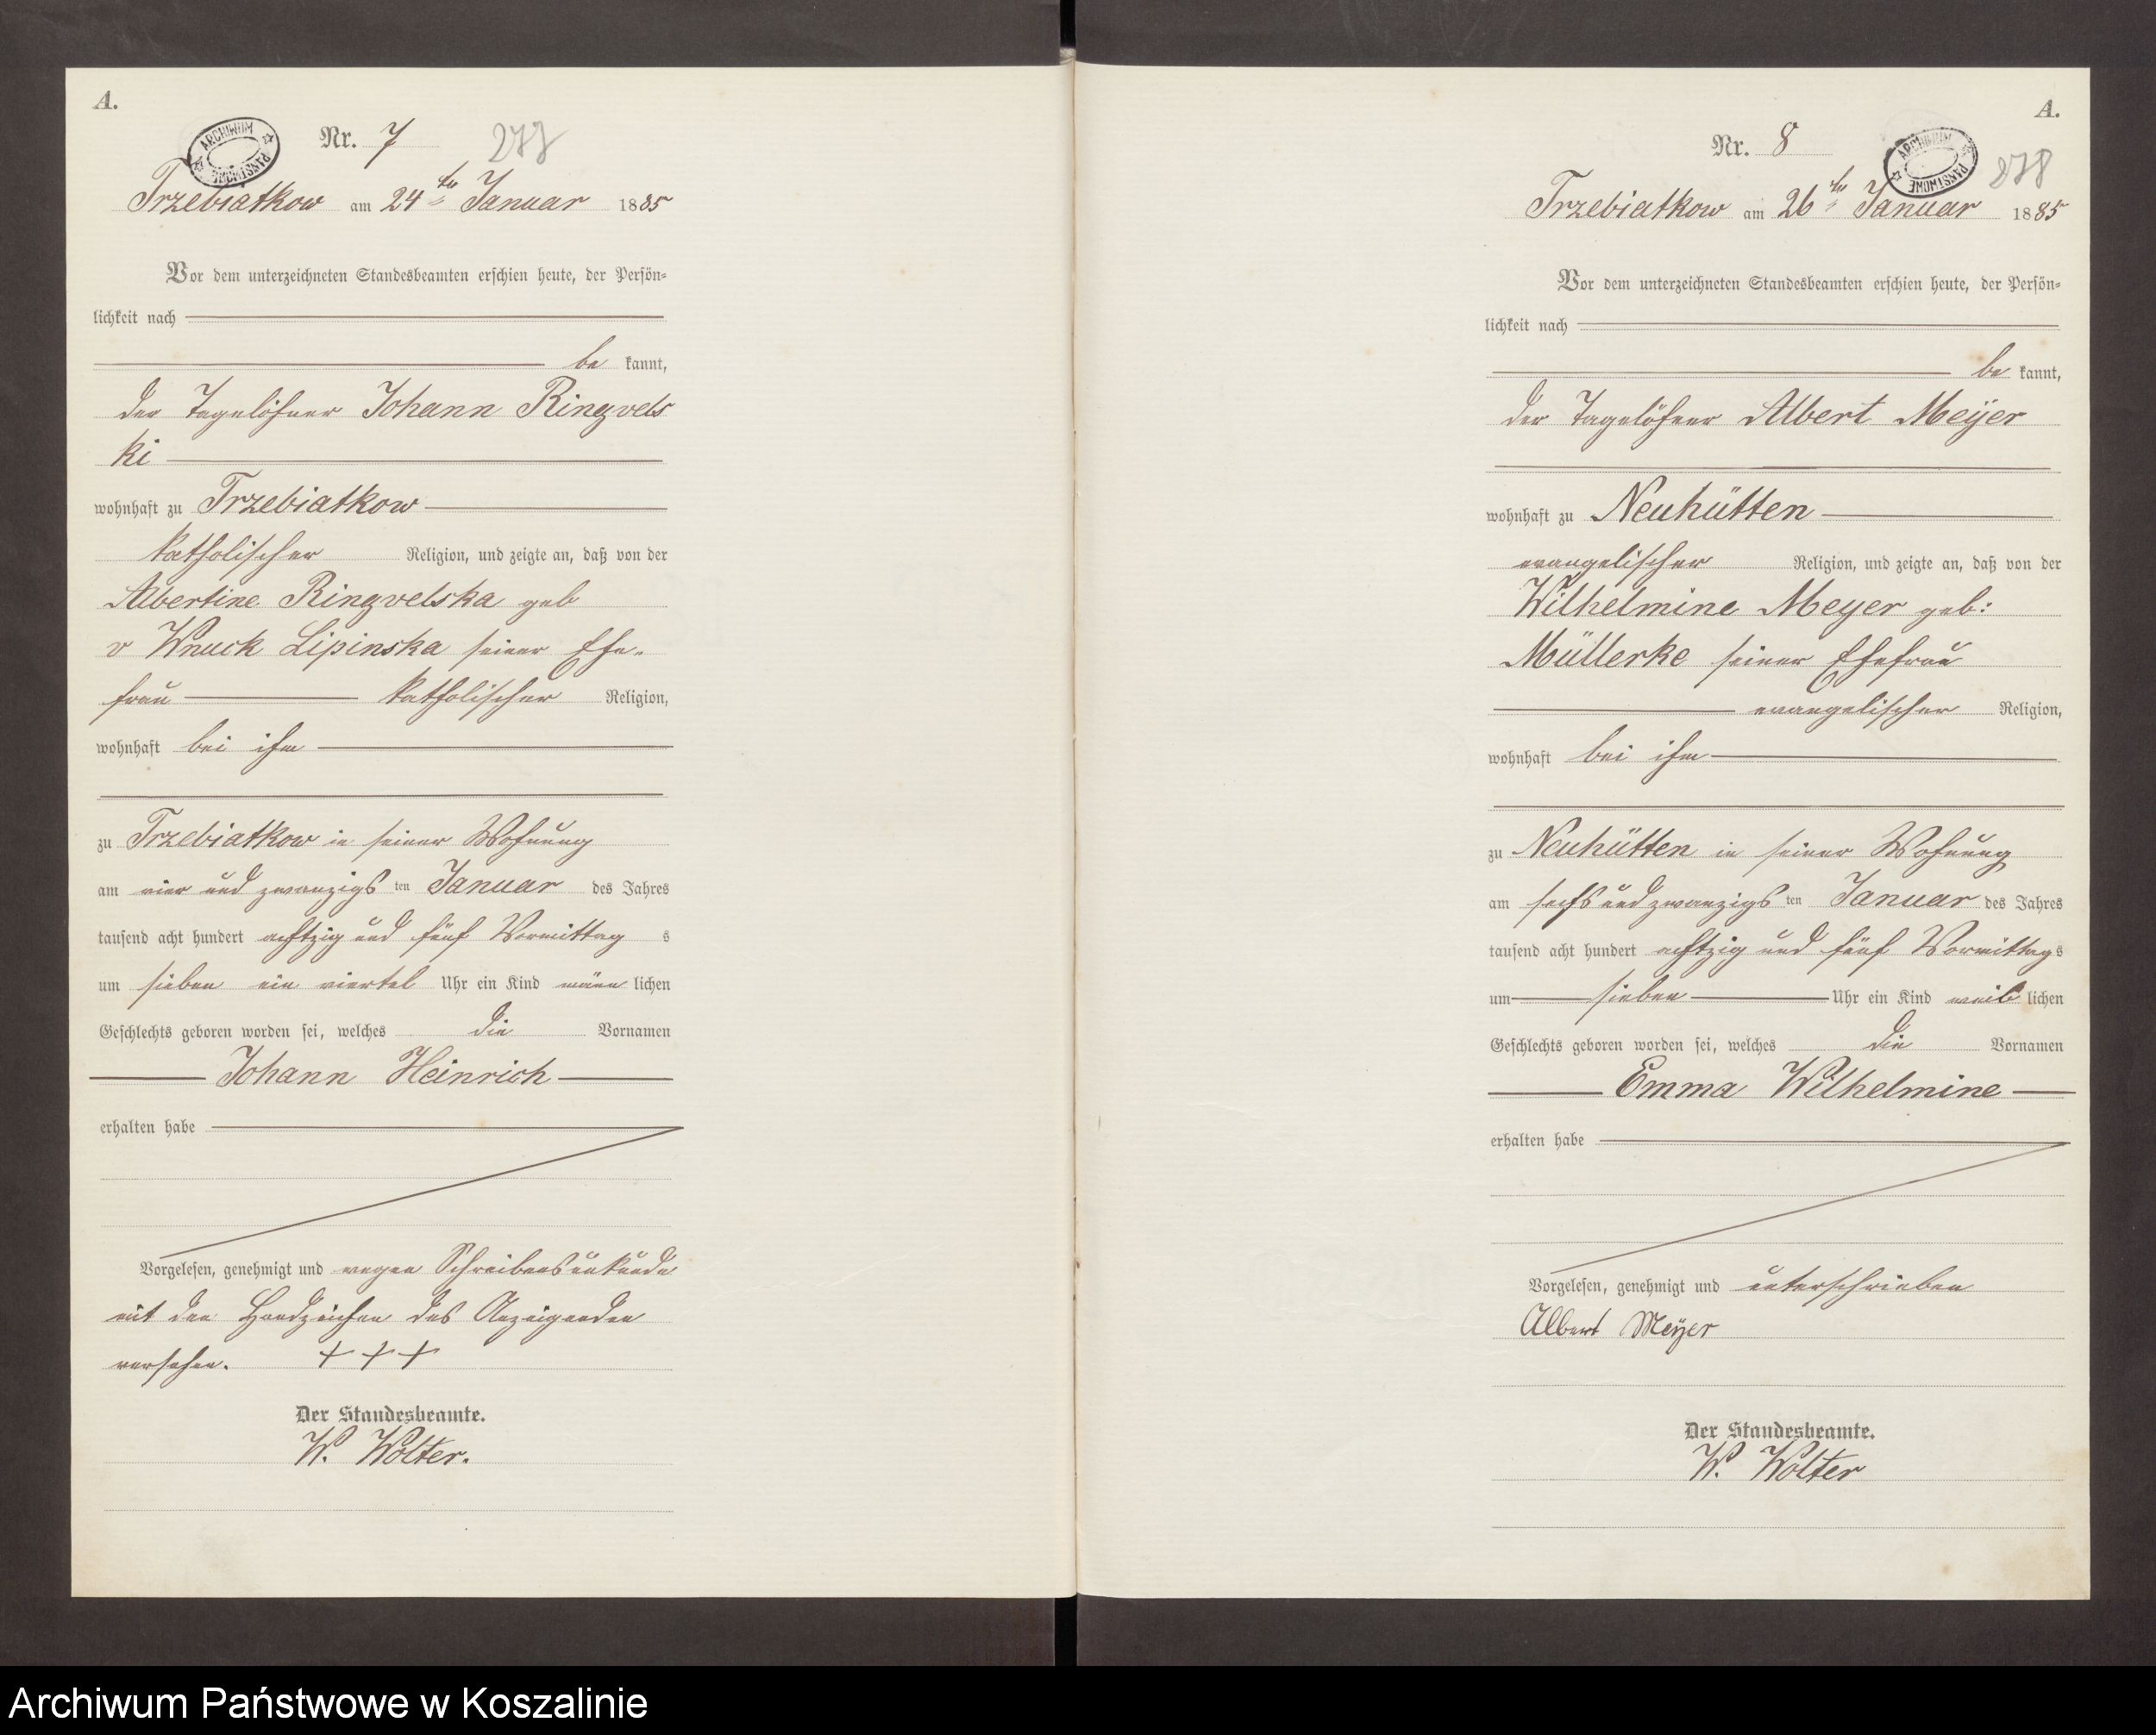 A.
ARCHIWUM PAŃSTWOWE
Nr. 7
277
Trzebiatkow am 24ten Januar 1885
Vor dem unterzeichneten Standesbeamten erschien heute, der Persön-
lichkeit nach
be kannt,
der Tagelöhner Johann Ringvels
ki
wohnhaft zu Trzebiatkow
katholischer Religion, und zeigte an, daß von der
Albertine Ringvelska geb
v Wnuck Lipinska seiner Ehe-
frau katholischer Religion,
wohnhaft bei ihm
zu Trzebiatkow in seiner Wohnung
am vier und zwanzigs ten Januar des Jahres
tausend acht hundert achtzig und fünf Vormittag s
um sieben ein viertel Uhr ein Kind männ lichen
Geschlechts geboren worden sei, welches die Vornamen
Johann Heinrich
erhalten habe
Vorgelesen, genehmigt und wegen Schreibensunkunde
mit den Handzeichen des Anzeigenden
versehen. + + +
Der Standesbeamte.
W. Wolter.
A.
Nr. 8
ARCHIWUM PAŃSTWOWE
278
Trzebiatkow am 26ten Januar 1885
Vor dem unterzeichneten Standesbeamten erschien heute, der Persön-
lichkeit nach
be kannt,
der Tagelöhner Albert Meÿer
wohnhaft zu Neuhütten
evangelischer Religion, und zeigte an, daß von der
Wilhelmine Meyer geb:
Müllerke seiner Ehefrau
evangelischer Religion,
wohnhaft bei ihm
zu Neuhütten in seiner Wohnung
am sechs und zwanzigs ten Januar des Jahres
tausend acht hundert achtzig und fünf Vormittag s
um sieben Uhr ein Kind weib lichen
Geschlechts geboren worden sei, welches die Vornamen
Emma Wilhelmine
erhalten habe
Vorgelesen, genehmigt und unterschrieben
Albert Meÿer
Der Standesbeamte.
W. Wolter
Archiwum Państwowe w Koszalinie